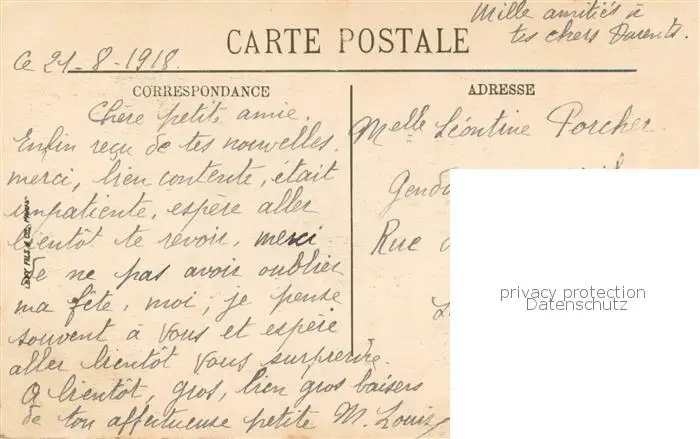 Mille amitiés à
tes chers Parents.
CARTE POSTALE
Ce 21-8-1918.
CORRESPONDANCE
ADRESSE
Chère petite amie.
Enfin reçu de tes nouvelles.
merci, bien contente, était
impatiente, espère aller
bientôt te revoir, merci
de ne pas avoir oublier
ma fête, moi, je pense
souvent à vous et espère
aller bientôt vous surprendre.
A bientôt, gros, bien gros baisers
de ton affectueuse petite M. Louise
Melle Léontine Porcher.
Rue
privacy protection
Datenschutz